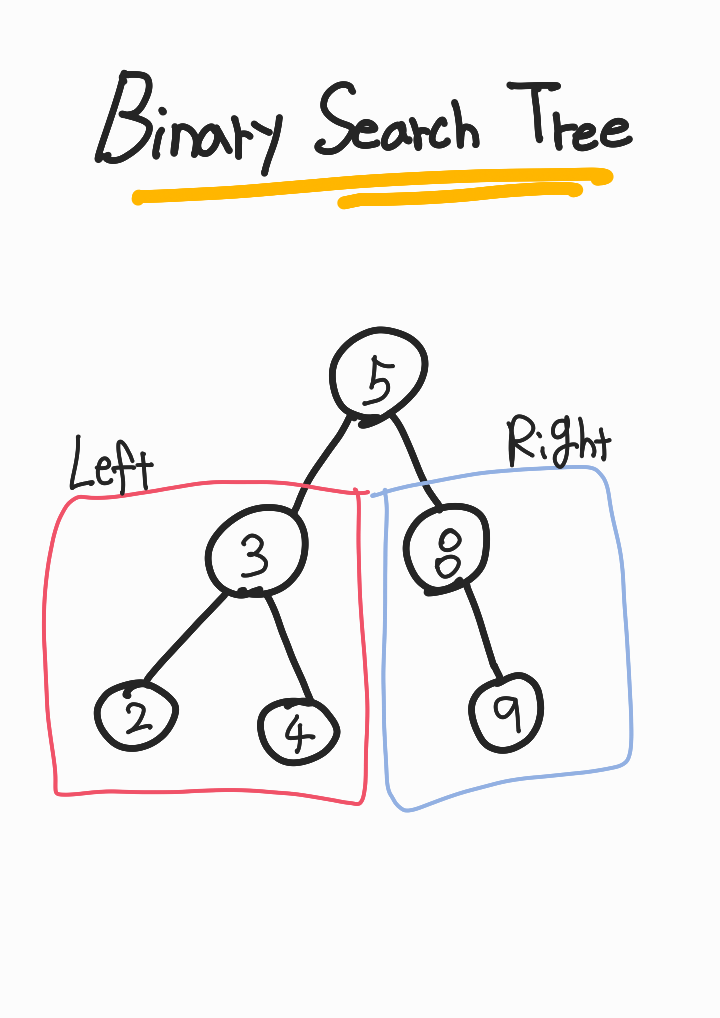 Binary Search Tree
5
Left Right
3 8
2 4 9